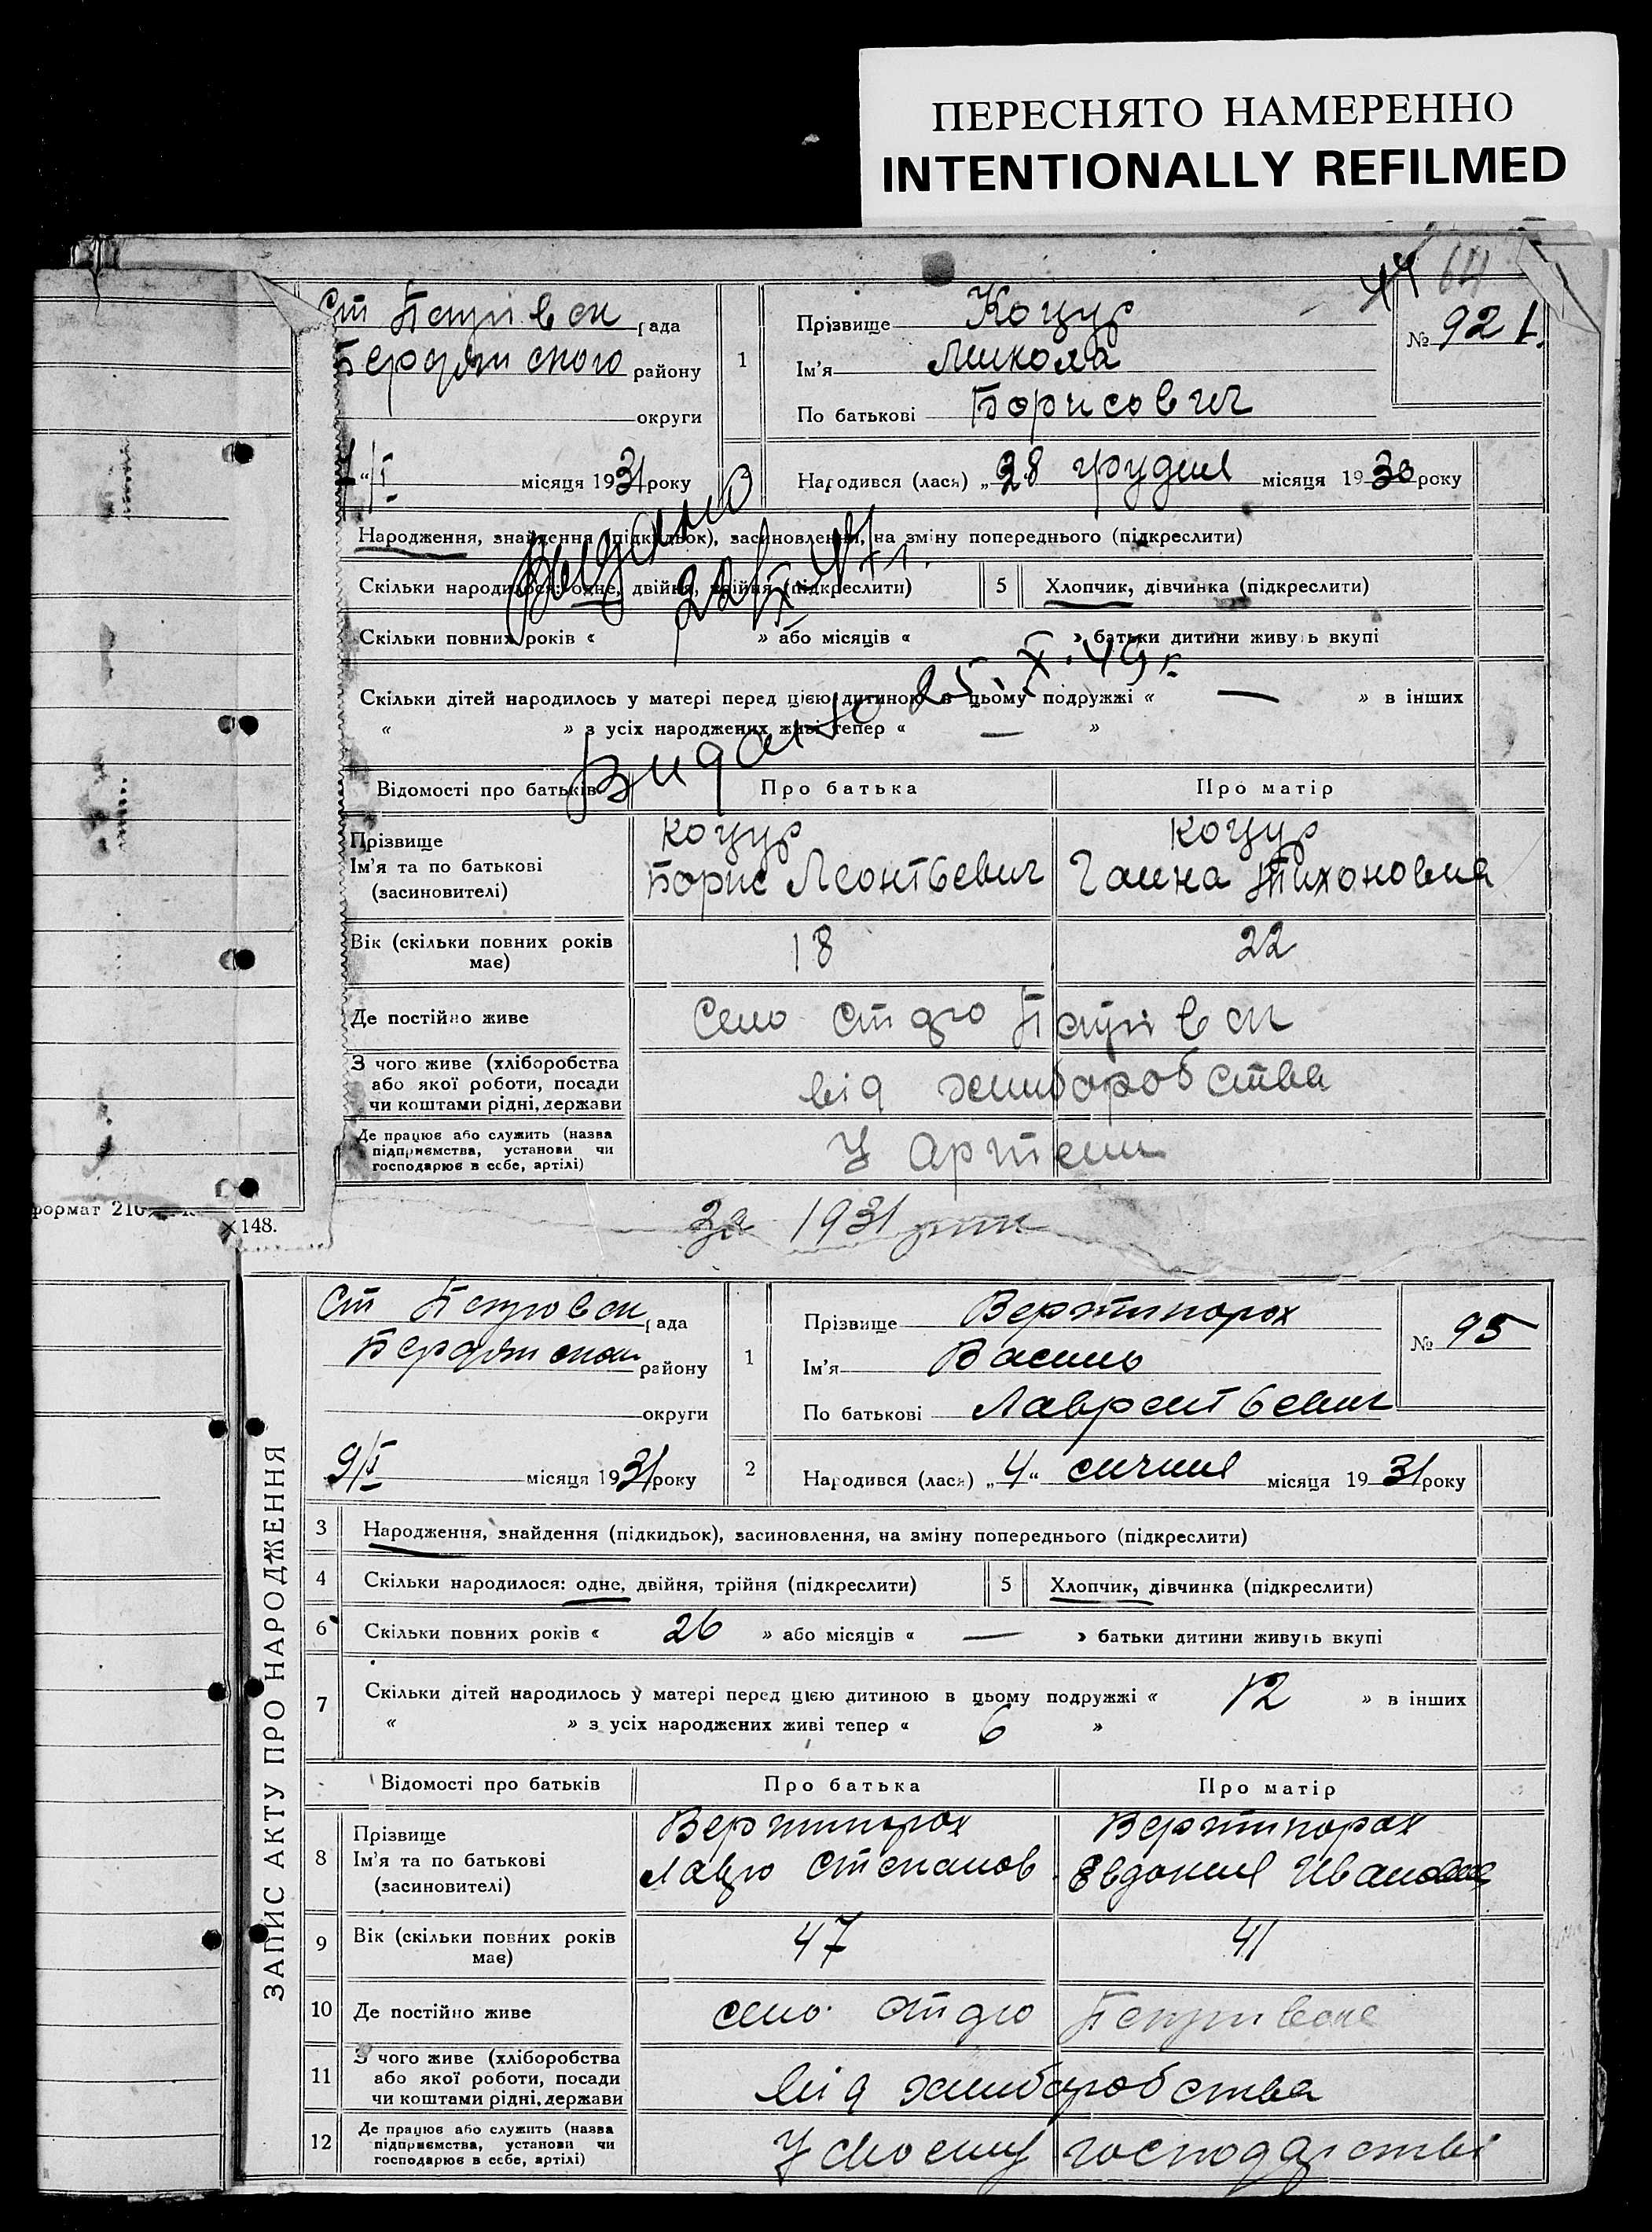 ПЕРЕСНЯТО НАМЕРЕННО
INTENTIONALLY REFILMED
44 64
Ст Петрівск рада
Бердянского району
округи
1
Прізвище Коцур
Ім'я Микола
По батькові Борисович
№ 92
I місяця 1931 року
Народився (лася) „28 грудня місяця 1930 року
Народження, знайдення (підкидьок), засиновлення, на зміну попереднього (підкреслити)
Скільки народилося: одне, двійня, трійня (підкреслити) 5 Хлопчик, дівчинка (підкреслити)
Скільки повних років « » або місяців « » батьки дитини живуть вкупі
Скільки дітей народилось у матері перед цією дитиною в цьому подружжі « — » в інших
« » з усіх народжених живі тепер « — »
Видано
Видано 25. X. 49 г.
Відомості про батьків Про батька Про матір
Прізвище
Ім'я та по батькові
(засиновителі)
Коцур
Борис Леонтьевич
Коцур
Ганна Тихоновна
Вік (скільки повних років
має)
18 22
Де постійно живе Село Ст дго Петрівск
З чого живе (хліборобства
або якої роботи, посади
чи коштами рідні, держави
від хліборобства
Де працює або служить (назва
підприємства, установи чи
господарює в себе, артілі)
У артели
формат 210
×148.
за 1931
ЗАПИС АКТУ ПРО НАРОДЖЕННЯ
Ст Петровск рада
Бердянськ району
округи
1
Прізвище Вертипорох
Ім'я Василь
По батькові Лаврентьевич
№ 95
9/I місяця 1931 року
2 Народився (лася) „4“ січня місяця 1931 року
3 Народження, знайдення (підкидьок), засиновлення, на зміну попереднього (підкреслити)
4 Скільки народилося: одне, двійня, трійня (підкреслити) 5 Хлопчик, дівчинка (підкреслити)
6 Скільки повних років « 26 » або місяців « — » батьки дитини живуть вкупі
7 Скільки дітей народилось у матері перед цією дитиною в цьому подружжі « 12 » в інших
« » з усіх народжених живі тепер « 6 »
Відомості про батьків Про батька Про матір
8 Прізвище
Ім'я та по батькові
(засиновителі)
Вертипорох
Лавро Степанов
Вертипорох
Евдокия Ивановна
9 Вік (скільки повних років
має)
47 41
10 Де постійно живе село Ст дго Петрівске
11 З чого живе (хліборобства
або якої роботи, посади
чи коштами рідні, держави
від хліборобства
12 Де працює або служить (назва
підприємства, установи чи
господарює в себе, артілі)
У своєму господарстві